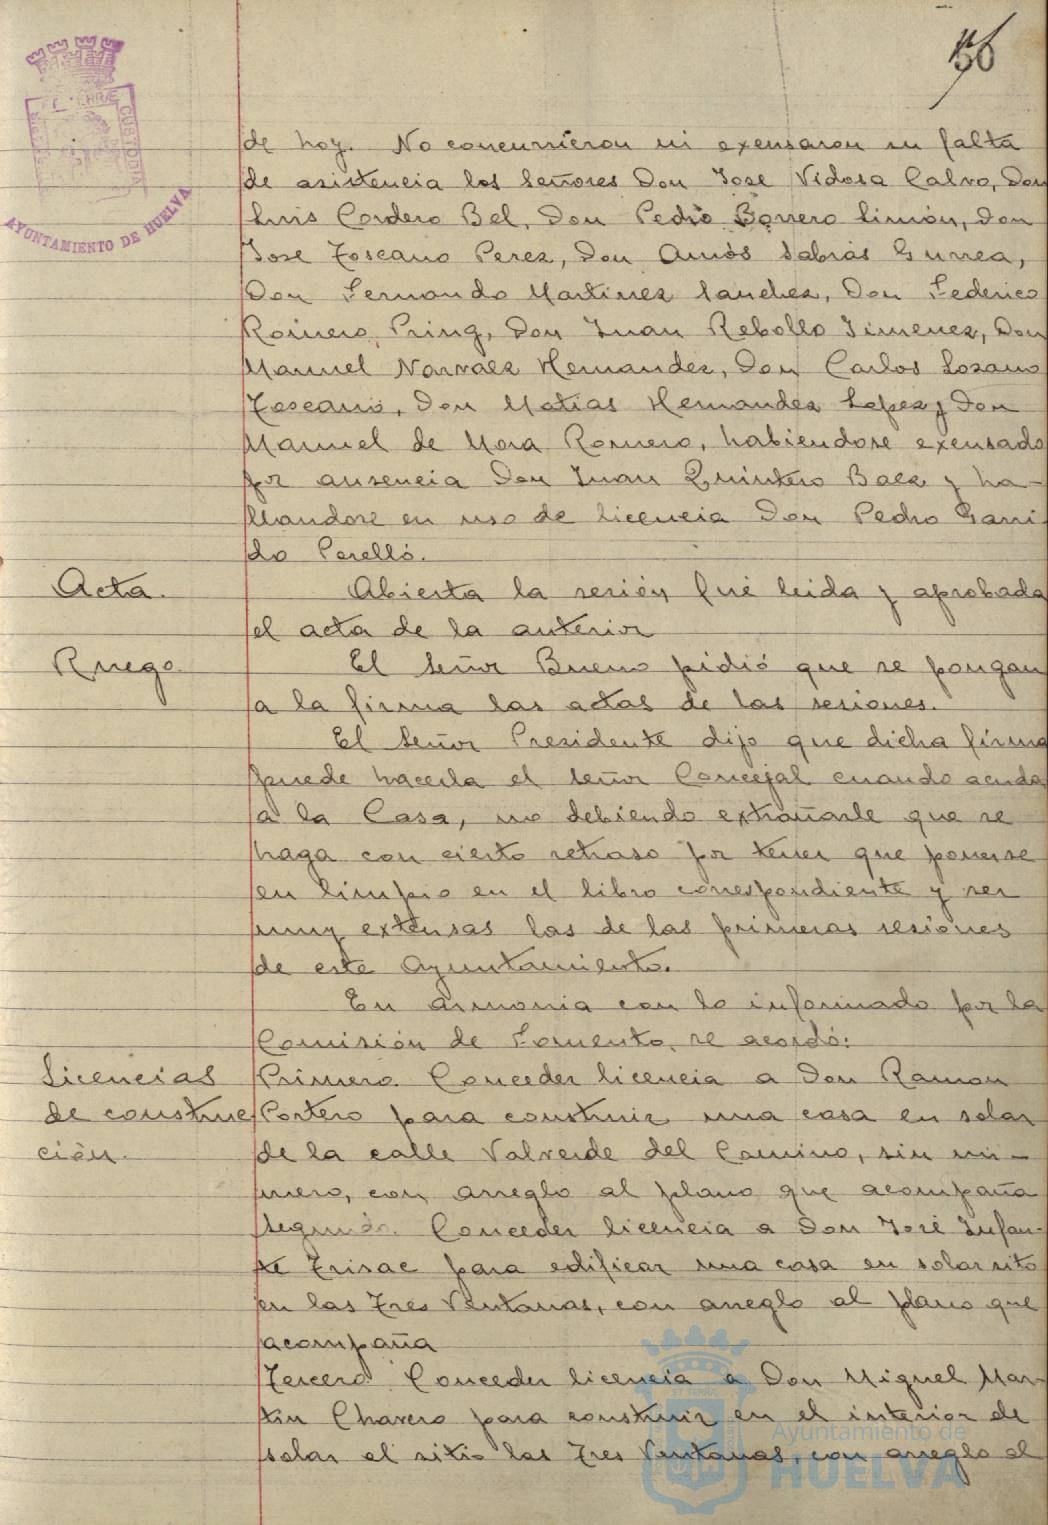 156
AYUNTAMIENTO DE HUELVA
de hoy. No concurrieron ni excusaron su falta
de asistencia los Señores Don Jose Vidosa Calvo, Don
Luis Cordero Bel, Don Pedro Borrero Limón, Don
Jose Toscano Perez, Don Amós Sabrás Gurrea,
Don Fernando Martinez Sanchez, Don Federico
Romero Pring, Don Juan Rebollo Jimenez, Don
Manuel Narvaez Hernandez, Don Carlos Lozano
Toscano, Don Matias Hernandez Lopez y Don
Manuel de Mora Romero, habiendose excusado
por ausencia Don Juan Quintero Baez y ha-
llandose en uso de licencia Don Pedro Garri
do Perelló.
Acta. Abierta la sesión fué leida y aprobada
el acta de la anterior
Ruego. El Señor Bueno pidió que se pongan
a la firma las actas de las sesiones.
El Señor Presidente dijo que dicha firma
puede hacerla el Señor Concejal cuando acuda
a la Casa, no debiendo extrañarle que se
haga con cierto retraso por tener que ponerse
en limpio en el libro correspondiente y ser
muy extensas las de las primeras sesiones
de este Ayuntamiento.
En armonia con lo informado por la
Comisión de Fomento, se acordó:
Licencias Primero. Conceder licencia a Don Ramon
de construc Portero para construir una casa en solar
ción. de la calle Valverde del Camino, sin nú-
mero, con arreglo al plano que acompaña
Segundo. Conceder licencia a Don José Infan-
te Trisac para edificar una casa en solar sito
en las Tres Ventanas, con arreglo al plano que
acompaña
Tercero. Conceder licencia a Don Miguel Mar-
tin Chavero para construir en el interior de
solar al sitio las Tres Ventanas, con arreglo al
Ayuntamiento de
HUELVA